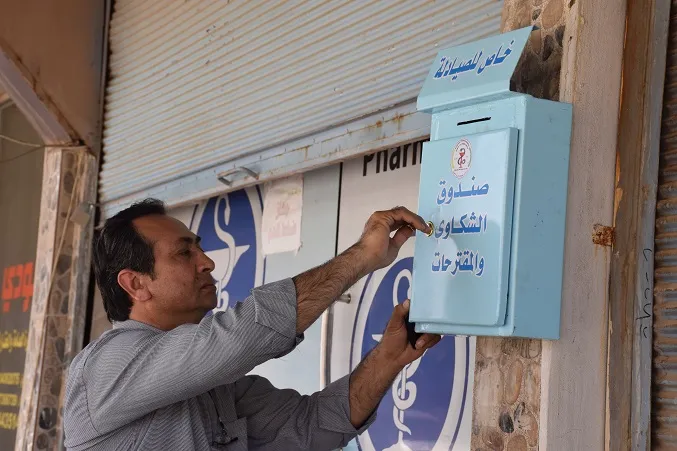 خاص للصيادلة
صندوق
الشكاوي
والمقترحات
Pharm